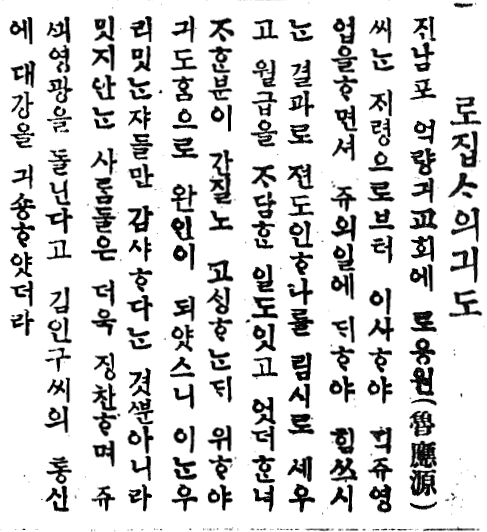 로집ᄉ의긔도
진남포 억량긔교회에 로응원(魯應源)
씨ᄂᆞᆫ 지령으로브터 이사ᄒᆞ야 ᄆᆡ쥬영
업을ᄒᆞ면셔 쥬외일에 ᄃᆡᄒᆞ야 힘쓰시
ᄂᆞᆫ 결과로 젼도인ᄒᆞ나를 림시로 셰우
고 월급을 ᄌᆞ담ᄒᆞᆫ 일도잇고 엇더ᄒᆞᆫ녀
ᄌᆞᄒᆞᆫ분이 간질노 고싱ᄒᆞᄂᆞᆫᄃᆡ 위ᄒᆞ야
긔도홈으로 완인이 되얏스니 이ᄂᆞᆫ우
리밋ᄂᆞᆫ쟈들만 감샤ᄒᆞ다ᄂᆞᆫ 것ᄲᅮᆫ아니라
밋지안ᄂᆞᆫ 사ᄅᆞᆷ들은 더욱 징찬ᄒᆞ며 쥬
ᄭᅴ영광을 돌닌다고 김인구씨의 통신
에 대강을 긔송ᄒᆞ얏더라